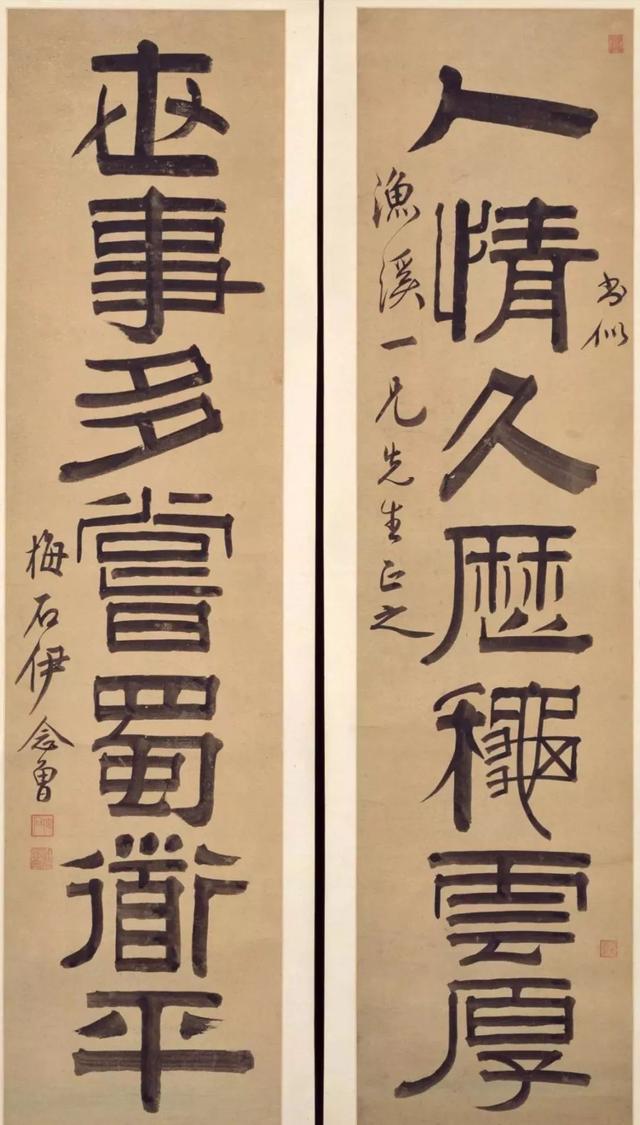 人情久歷穐雲厚
書似
漁溪一兄先生正之
世事多嘗蜀衜平
梅石伊念曾